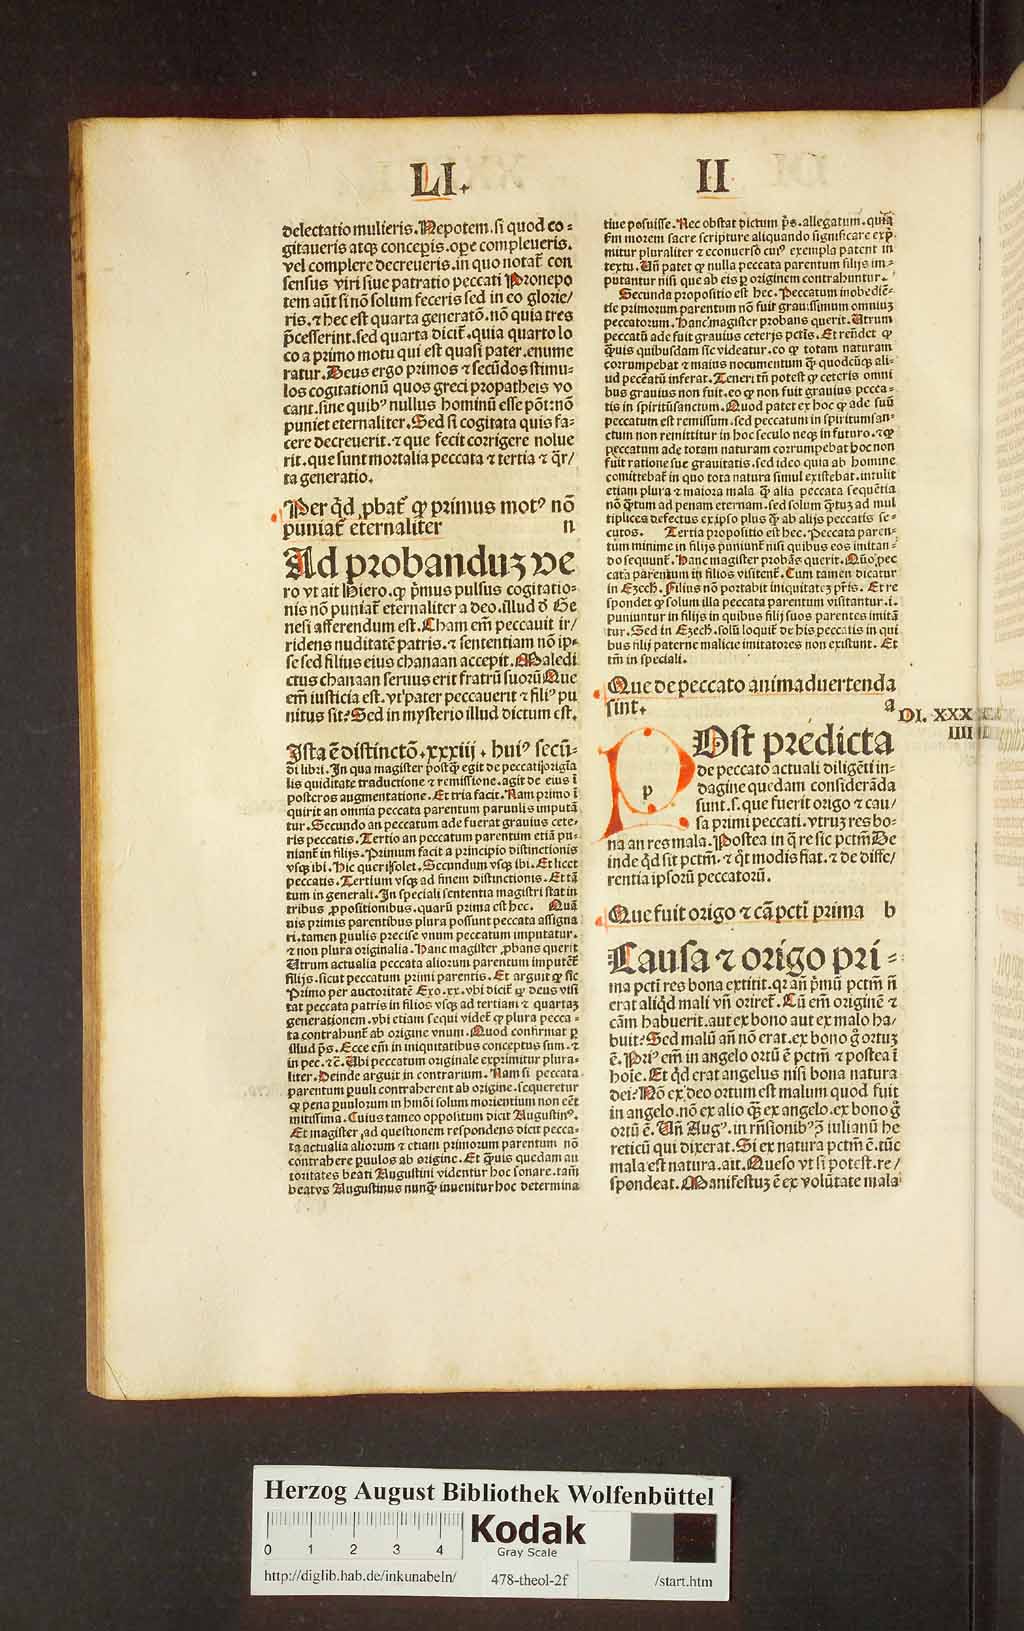 LI.
II
delectatio mulieris. Nepotem. si quod co⸗
gitaueris atqꝫ conceperis. oꝑe compleueris.
vel complere decreueris. in quo notat᷑ con
sensus viri siue patratio peccati Pronepo
tem aūt si nō solum feceris sed in eo glorie/
ris. ⁊ hec est quarta generatō. nō quia tres
p̄cesserint. sed quarta dicit᷑. quia quarto lo
co a primo motu qui est quasi pater. enume
ratur. Deus ergo primos ⁊ secūdos stimu⸗
los cogitationū quos greci propatheis vo
cant. sine quibꝰ nullus hominū esse pōt: nō
puniet eternaliter. Sed si cogitata quis fa⸗
cere decreuerit. ⁊ que fecit corrigere nolue
rit. que sunt mortalia peccata ⁊ tertia ⁊ q̈r/
ta generatio.
Per qd̄ ꝓbat᷑ ꝙ primus motꝰ nō
puniat᷑ eternaliter n
Ad probanduꝫ ve
ro vt ait Hiero. ꝙ p̄mus pulsus cogitatio⸗
nis nō puniat᷑ eternaliter a deo. illud d̄ Ge
nesi afferendum est. Cham em̄ peccauit ir/
ridens nuditatē patris. ⁊ sententiam nō ip⸗
se sed filius eius chanaan accepit. Maledi
ctus chanaan seruus erit fratrū suorū Que
em̄ iusticia est. vt pater peccauerit ⁊ filiꝰ pu
nitus sit? Sed in mysterio illud dictum est.
Ista ē distinctō. xxxiij. huiꝰ secū⸗
di libri. In qua magister postꝙ̄ egit de peccati origīa
lis quiditate traductione ⁊ remissione. agit de eius ī
posteros augmentatione. Et tria facit. Nam primo ī
quirit an omnia peccata parentum paruulis imputā
tur. Secundo an peccatum ade fuerat grauius cete⸗
ris peccatis. Tertio an peccatum parentum etiā pu⸗
niant᷑ in filijs. Primum facit a principio distinctionis
vsqꝫ ibi. Hic queri solet. Secundum vsqꝫ ibi. Et licet
peccatis. Tertium vsqꝫ ad finem distinctionis. Et tā
tum in generali. In speciali sententia magistri stat in
tribus ꝓpositionibus. quarū prima est hec. Quā
uis primis parentibus plura possunt peccata assigna
ri. tamen ꝑuulis precise vnum peccatum imputatur.
⁊ non plura originalia. Hanc magister ꝓbans querit
Utrum actualia peccata aliorum parentum imputēt᷑
filijs. sicut peccatum primi parentis. Et arguit ꝙ sic
Primo per auctoritatē Exo. xx. vbi dicit᷑ ꝙ deus visi
tat peccata patris in filios vsqꝫ ad tertiam ⁊ quartaꝫ
generationem. vbi etiam sequi videt᷑ ꝙ plura pecca⸗
ta contrahunt᷑ ab origine vnum. Quod confirmat ꝑ
illud p̄s. Ecce em̄ in iniquitatibus conceptus sum. ⁊
in pec. ⁊c̄. Ubi peccatum originale exprimitur plura⸗
liter. Deinde arguit in contrarium. Nam si peccata
parentum ꝑuuli contraherent ab origine. sequeretur
ꝙ pena ꝑuulorum in hmōi solum morientium non eēt
mitissima. Cuius tameo oppositum dicit Augustinꝰ.
Et magister ad questionem respondens dicit pecca⸗
ta actualia aliorum ⁊ etiam primorum parentum nō
contrahere ꝑuulos ab origine. Et ꝙ̄uis quedam au
toritates beati Augustini videntur hoc sonare. tam̄
beatus Augustinus nunꝙ̄ inuenitur hoc determina
tiue posuisse. Nec obstat dictum p̄s. allegatum. quia
s̄m morem sacre scripture aliquando significare exp̄
mitur pluraliter ⁊ econuerso cuiꝰ exempla patent in
textu. Un̄ patet ꝙ nulla peccata parentum filijs im⸗
putantur nisi que ab eis ꝑ originem contrahuntur.
Secunda propositio est hec. Peccatum inobediē⸗
tie primorum parentum nō fuit grauissimum omniuꝫ
peccatorum. Hanc magister probans querit. Utrum
peccatū ade fuit grauius ceteris pctīs. Et rēndet ꝙ
ꝙ̄uis quibusdam sic videatur. eo ꝙ totam naturam
corrumpebat ⁊ maius nocumentum ꝙ̄ quodcūqꝫ ali⸗
ud peccatū inferat. Teneri tn̄ potest ꝙ ceteris omni
bus grauius non fuit. eo ꝙ non fuit grauius pecca⸗
tis in spiritūsanctum. Quod patet ex hoc ꝙ ade suū
peccatum est remissum. sed peccatum in spiritumsan⸗
ctum non remittitur in hoc seculo neqꝫ in futuro. ⁊ ꝙ
peccatum ade totam naturam corrumpebat hoc non
fuit ratione sue grauitatis. sed ideo quia ab homine
comittebat᷑ in quo tota natura simul existebat. intulit
etiam plura ⁊ maiora mala ꝙ̄ alia peccata sequētia
nō ꝙ̄tum ad penam eternam. sed solum ꝙ̄tuꝫ ad mul
tiplices defectus ex ipso plus ꝙ̄ ab alijs peccatis se⸗
cutos. Tertia propositio est hec. Peccata paren⸗
tum minime in filijs puniunt᷑ nisi quibus eos imitan⸗
do sequunt᷑. Hanc magister probās querit. Quō pec
cata parentum in filios visitent᷑. Cum tamen dicatur
in Ezech. Filius nō portabit iniquitateꝫ pr̄is. Et re
spondet ꝙ solum illa peccata parentum visitantur. i.
puniuntur in filijs in quibus filij suos parentes imitā
tur. Sed in Ezech. solū loquit᷑ de his peccatis in qui
bus filij paterne malicie imitatores non existunt. Et
tm̄ in speciali.
Que de peccato animaduertenda
sint. a
DI. XXX
IIII
p
POst predicta
de peccato actuali diligēti in⸗
dagine quedam considerāda
sunt. s. que fuerit origo ⁊ cau/
sa primi peccati. vtruꝫ res bo⸗
na an res mala. Postea in q̄ re sic pctm̄. De
inde qd̄ sit pctm̄. ⁊ q̄t modis fiat. ⁊ de diffe/
rentia ipsorū peccatorū.
Que fuit origo ⁊ cā pcti prima b
Causa ⁊ origo pri⸗
ma pcti res bona extitit. qr an̄ p̄mū pctm̄ n̄
erat aliqd̄ mali vn̄ oriret᷑. Cū em̄ originē ⁊
cām habuerit. aut ex bono aut ex malo ha/
buit? Sed malū an̄ nō erat. ex bono g̊ ortuꝫ
ē. Priꝰ em̄ in angelo ortū ē pctm̄ ⁊ postea ī
hoīe. Et qd̄ erat angelus nisi bona natura
dei? Nō ex deo ortum est malum quod fuit
in angelo. nō ex alio ꝙ̄ ex angelo. ex bono g̊
ortū ē. Un̄ Augꝰ. in rn̄sionibꝰ ꝯ iulianū he
reticū qui dixerat. Si ex natura pctm̄ ē. tūc
mala est natura. ait. Queso vt si potest. re/
spondeat. Manifestuꝫ ē ex volūtate mala
Herzog August Bibliothek Wolfenbüttel
0 1 2 3 4
Kodak
Gray Scale
http://diglib.hab.de/inkunabeln/ 478-theol-2f /start.htm